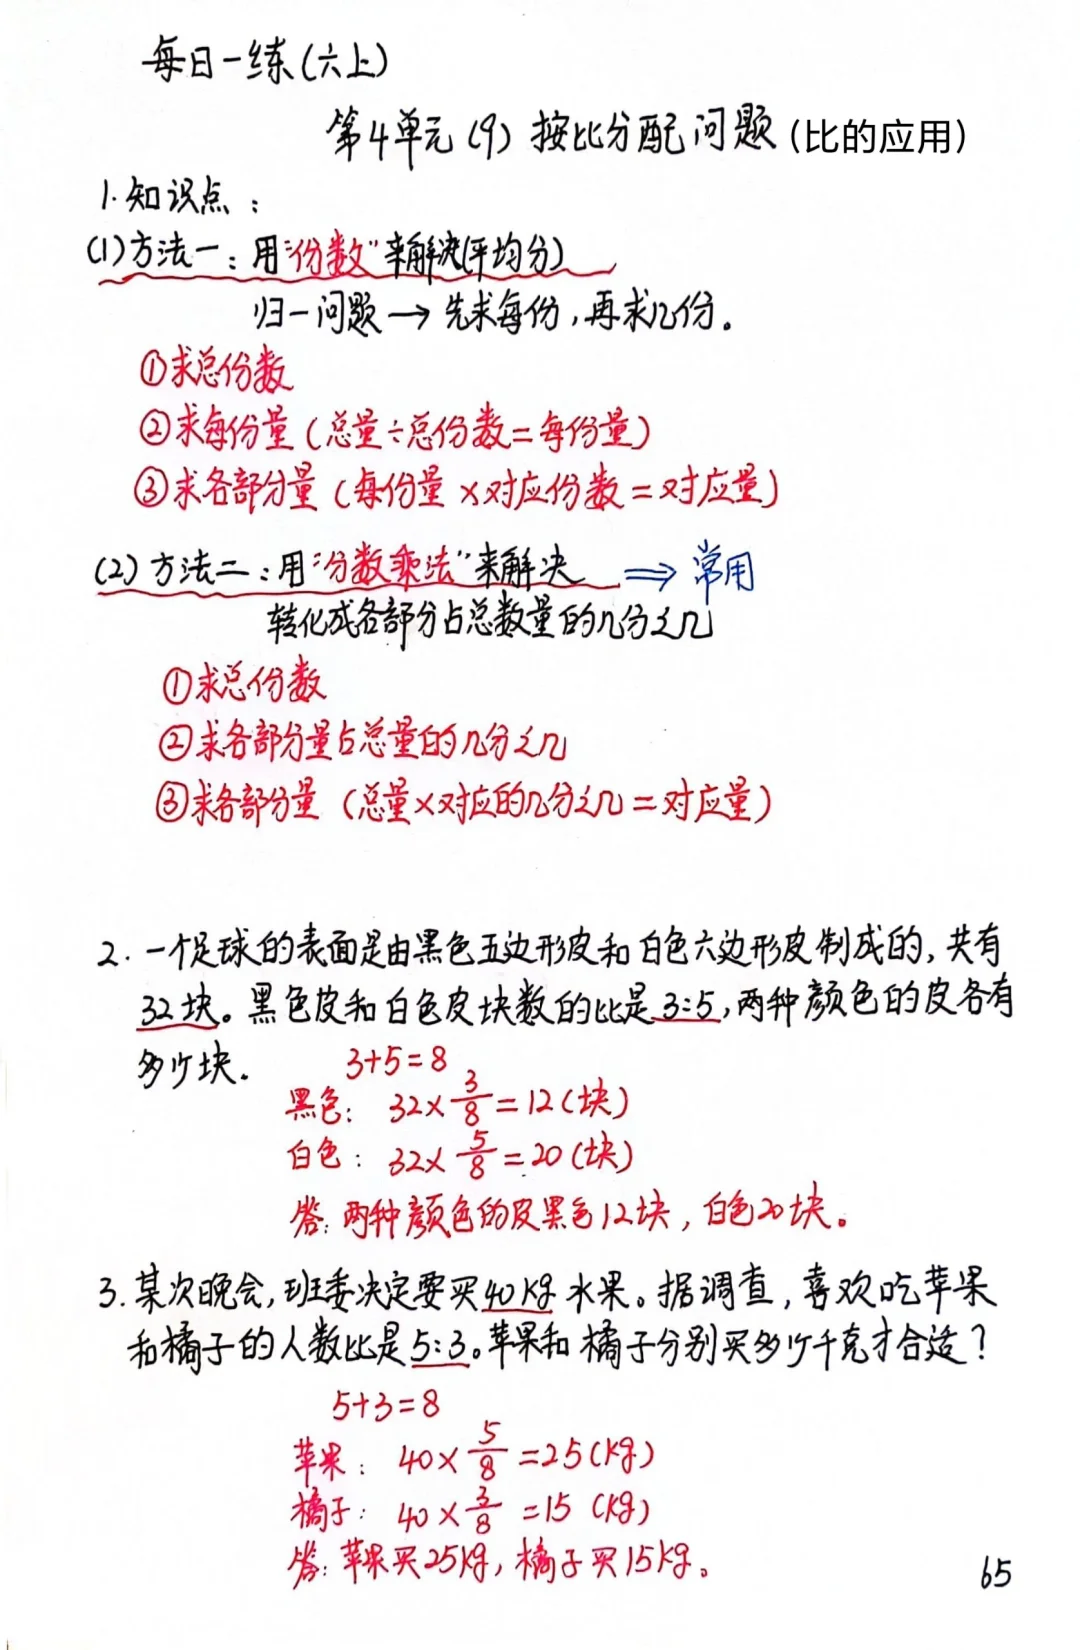 每日一练(六上)
第4单元(9) 按比分配问题(比的应用)
1.知识点：
(1)方法一：用“份数”来解决(平均分)
归一问题→先求每份,再求几份。
①求总份数
②求每份量(总量÷总份数=每份量)
③求各部分量(每份量×对应份数=对应量)
(2)方法二：用“分数乘法”来解决 ⇒ 常用
转化成各部分占总数量的几分之几
①求总份数
②求各部分量占总量的几分之几
③求各部分量(总量×对应的几分之几=对应量)
2.一个足球的表面是由黑色五边形皮和白色六边形皮制成的,共有
32块。黑色皮和白色皮块数的比是3:5,两种颜色的皮各有
多少块.
3+5=8
黑色: 32×3/8=12(块)
白色: 32×5/8=20(块)
答:两种颜色的皮黑色12块,白色20块。
3.某次晚会,班委决定要买40kg水果。据调查,喜欢吃苹果
和橘子的人数比是5:3。苹果和橘子分别买多少千克才合适?
5+3=8
苹果: 40×5/8=25(kg)
橘子: 40×3/8=15(kg)
答:苹果买25kg,橘子买15kg。
65